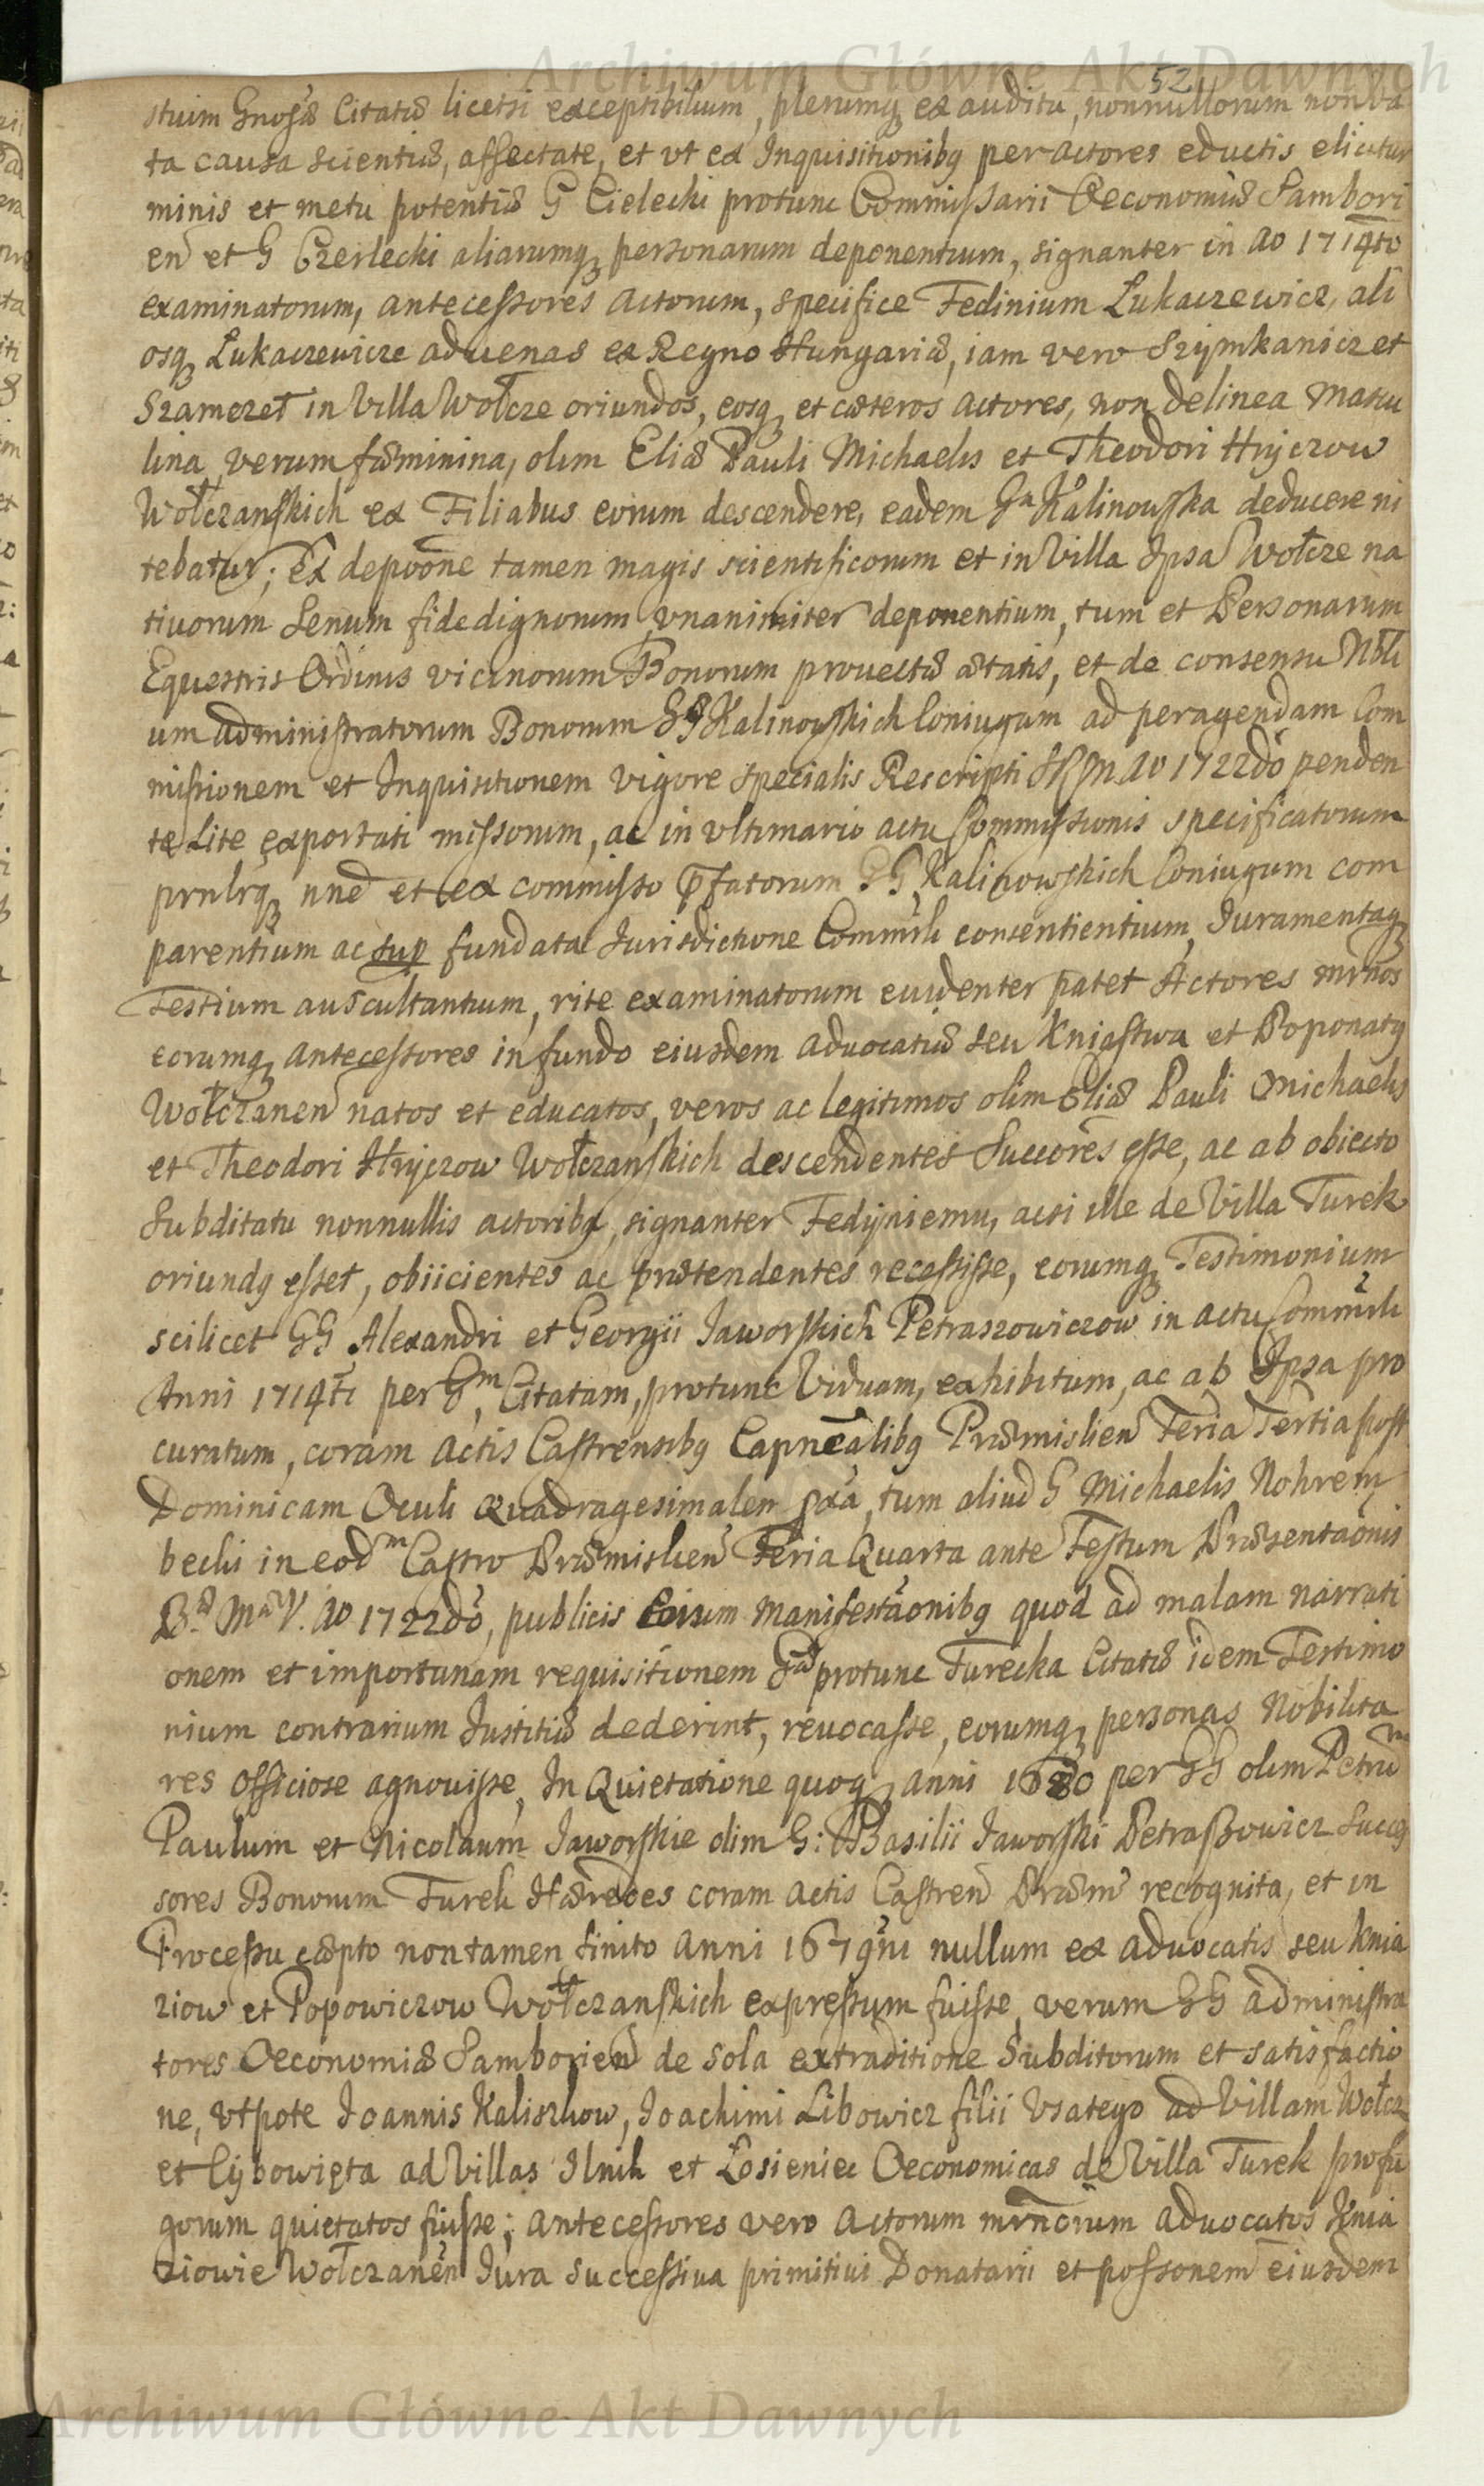 Archiwum Główne Akt Dawnych
52
stium Gnosæ Citatæ licetsi exceptibilium, plerumq ex auditu, nonnullorum non da
ta causa scientiæ, affectate, et vt ex Inquisitionibq per actores eductis elicitur
minis et metu potentiæ G Cielecki protunc Commissarii Oeconomiæ Sambori
en et G Czerlecki aliarumq personarum deponentium, signanter in Ao 1714to
examinatorum, antecessores Actorum, specifice Fedinium Lukaczewicz, ali
osq Lukaczewicze advenas ex Regno Hungariæ, iam vero Szymkanicz et
Szamezet in Villa Wołcze oriundos, eosq et cæteros Actores, non de linea Mascu
lina, verum fæminina, olim Eliæ Pauli Michaelis et Theodori Hryczow
Wołczanskich ex Filiabus eorum descendere, eadem Ga Kalinowska deducere ni
tebatur; Ex depoone tamen magis scientificorum et in Villa Ipsa Wołcze na
tivorum Senum fide dignorum vnanimiter deponentium, tum et Personarum
Equestris Ordinis vicinorum Bonorum provectæ ætatis, et de consensu Nobili
um administratorum Bonorum GG Kalinowskich Coniugum ad peragendam Com
missionem et Inquisitionem vigore specialis Rescripti SRM Ao 1722do penden
te Lite exportati missorum, ac in vltimario actu Commissionis specificatorum
prnlrq nne et ex commisso pfatorum GG Kalinowskich Coniugum com
parentium ac sup fundata Iurisdictione Commrli consentientium, Iuramentaq
Testium auscultantium, rite examinatorum evidenter patet Actores mrnos
eorumq antecessores in fundo eiusdem advocatiæ seu Kniastwa et Poponatq
Wołczanen natos et educatos, veros ac legitimos olim Eliæ Pauli Michaelis
et Theodori Hryczow Wołczanskich descendentes Succores esse, ac ab obiecto
Subditatu nonnullis actoribq, signanter Fedyniemu, acsi ille de Villa Turek
oriundq esset, obiicientes ac prætendentes recessisse, eorumq Testimonium
scilicet GG Alexandri et Georgii Jaworskich Petraszowiczow in actu Commrli
Anni 1714ti per Gm Citatam, protunc Viduam, exhibitum, ac ab Ipsa pro
curatum, coram Actis Castrensibq Capnealibq Præmislien Feria Tertia post
Dominicam Oculi Quadragesimalem pxa, tum aliud G Michaelis Nohrem
becki in eodm Castro Præmislien Feria Quarta ante Festum Præsentaonis
Bæ Mæ V. Ao 1722do, publicis Eorum Manifestaonibq quod ad malam narrati
onem et importunam requisitionem Gæ protunc Turecka Citatæ idem Testimo
nium contrarium Iustitiæ dederint, revocasse, eorumq personas Nobilita
res officiose agnovisse, In Quietatione quoq anni 1680 per GG olim Petrum
Paulum et Nicolaum Jaworskie olim G: Basilii Jaworski Petraszowicz Succes
sores Bonorum Turek Hæredes coram Actis Castren Præm recognita, et in
Processu cæpto non tamen finito Anni 1679ni nullum ex advocatis seu Knia
ziow et Popowiczow Wołczanskich expressum fuisse, verum GG administra
tores Oeconomiæ Samborien de sola extraditione Subditorum et satisfactio
ne, vtpote Joannis Kaliszkow, Joachimi Libowicz filii Vsatego ad Villam Wołcz
et Cybowięta ad Villas Ilnik et Łosieniec Oeconomicas de Villa Turek profu
gorum quietatos fuisse; antecessores vero Actorum mrnorum advocatos Knia
ziowie Wołczanen Iura successiva primitivi Donatarii et possonem eiusdem
Archiwum Główne Akt Dawnych